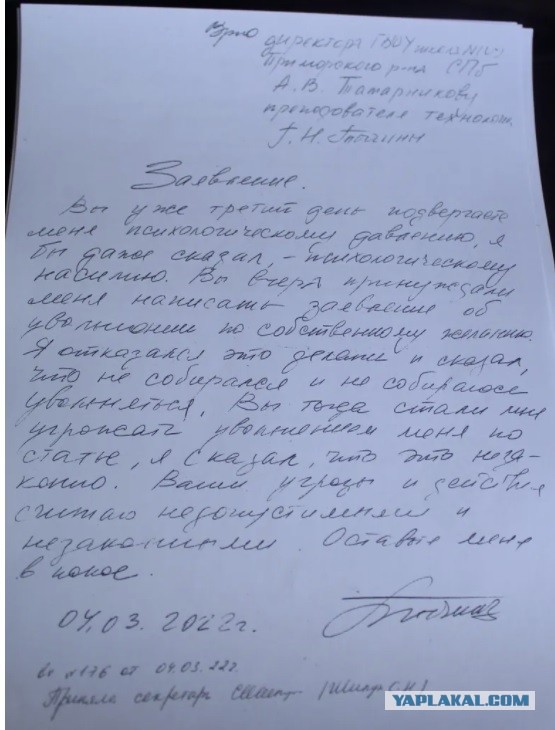 Врио директора ГБОУ школа N
Приморского р-на СПб
А. В. Татарникову
преподователя технолог.
Г. Н. Тычинин
Заявление.
Вы уже третий день подвергаете
меня психологическому давлению, я
бы даже сказал, - психологическому
насилию. Вы вчера принуждали
меня написать заявление об
увольнении по собственному желанию.
Я отказался это делать и сказал,
что не собирался и не собираюсь
увольняться. Вы тогда стали мне
угрожать увольнением меня по
статье, я сказал, что это неза-
конно. Ваши угрозы и действия
считаю недопустимыми и
незаконными. Оставьте меня
в покое.
04.03.2022г.
вх №176 от 04.03.22г.
Приняла секретарь
YAPLAKAL.COM